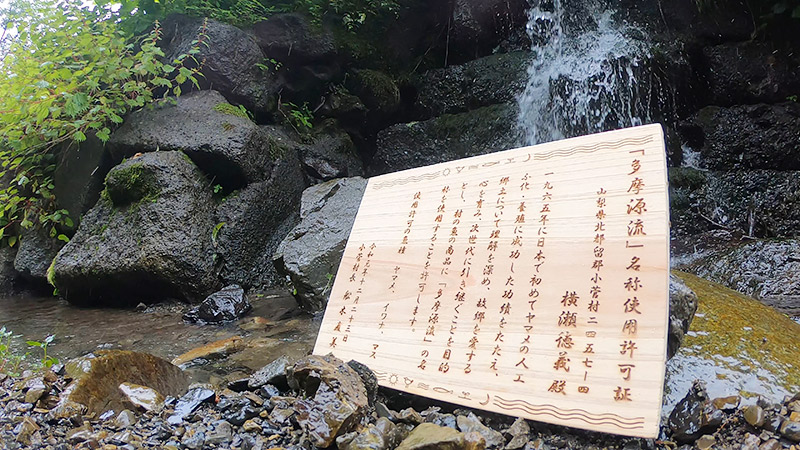 「多摩源流」名称使用許可証
山梨県北都留郡小菅村二四五七ー四
横瀬徳義殿
一九六五年に日本で初めてヤマメの人工
ふ化・養殖に成功した功績をたたえ、
郷土について理解を深め、故郷を愛する
心を育み、次世代に引き継ぐことを目的
とし、村の魚の商品に「多摩源流」の名
称を使用することを許可します。
使用許可の魚種 ヤマメ、イワナ、マス
令和三年十二月二十三日
小菅村長